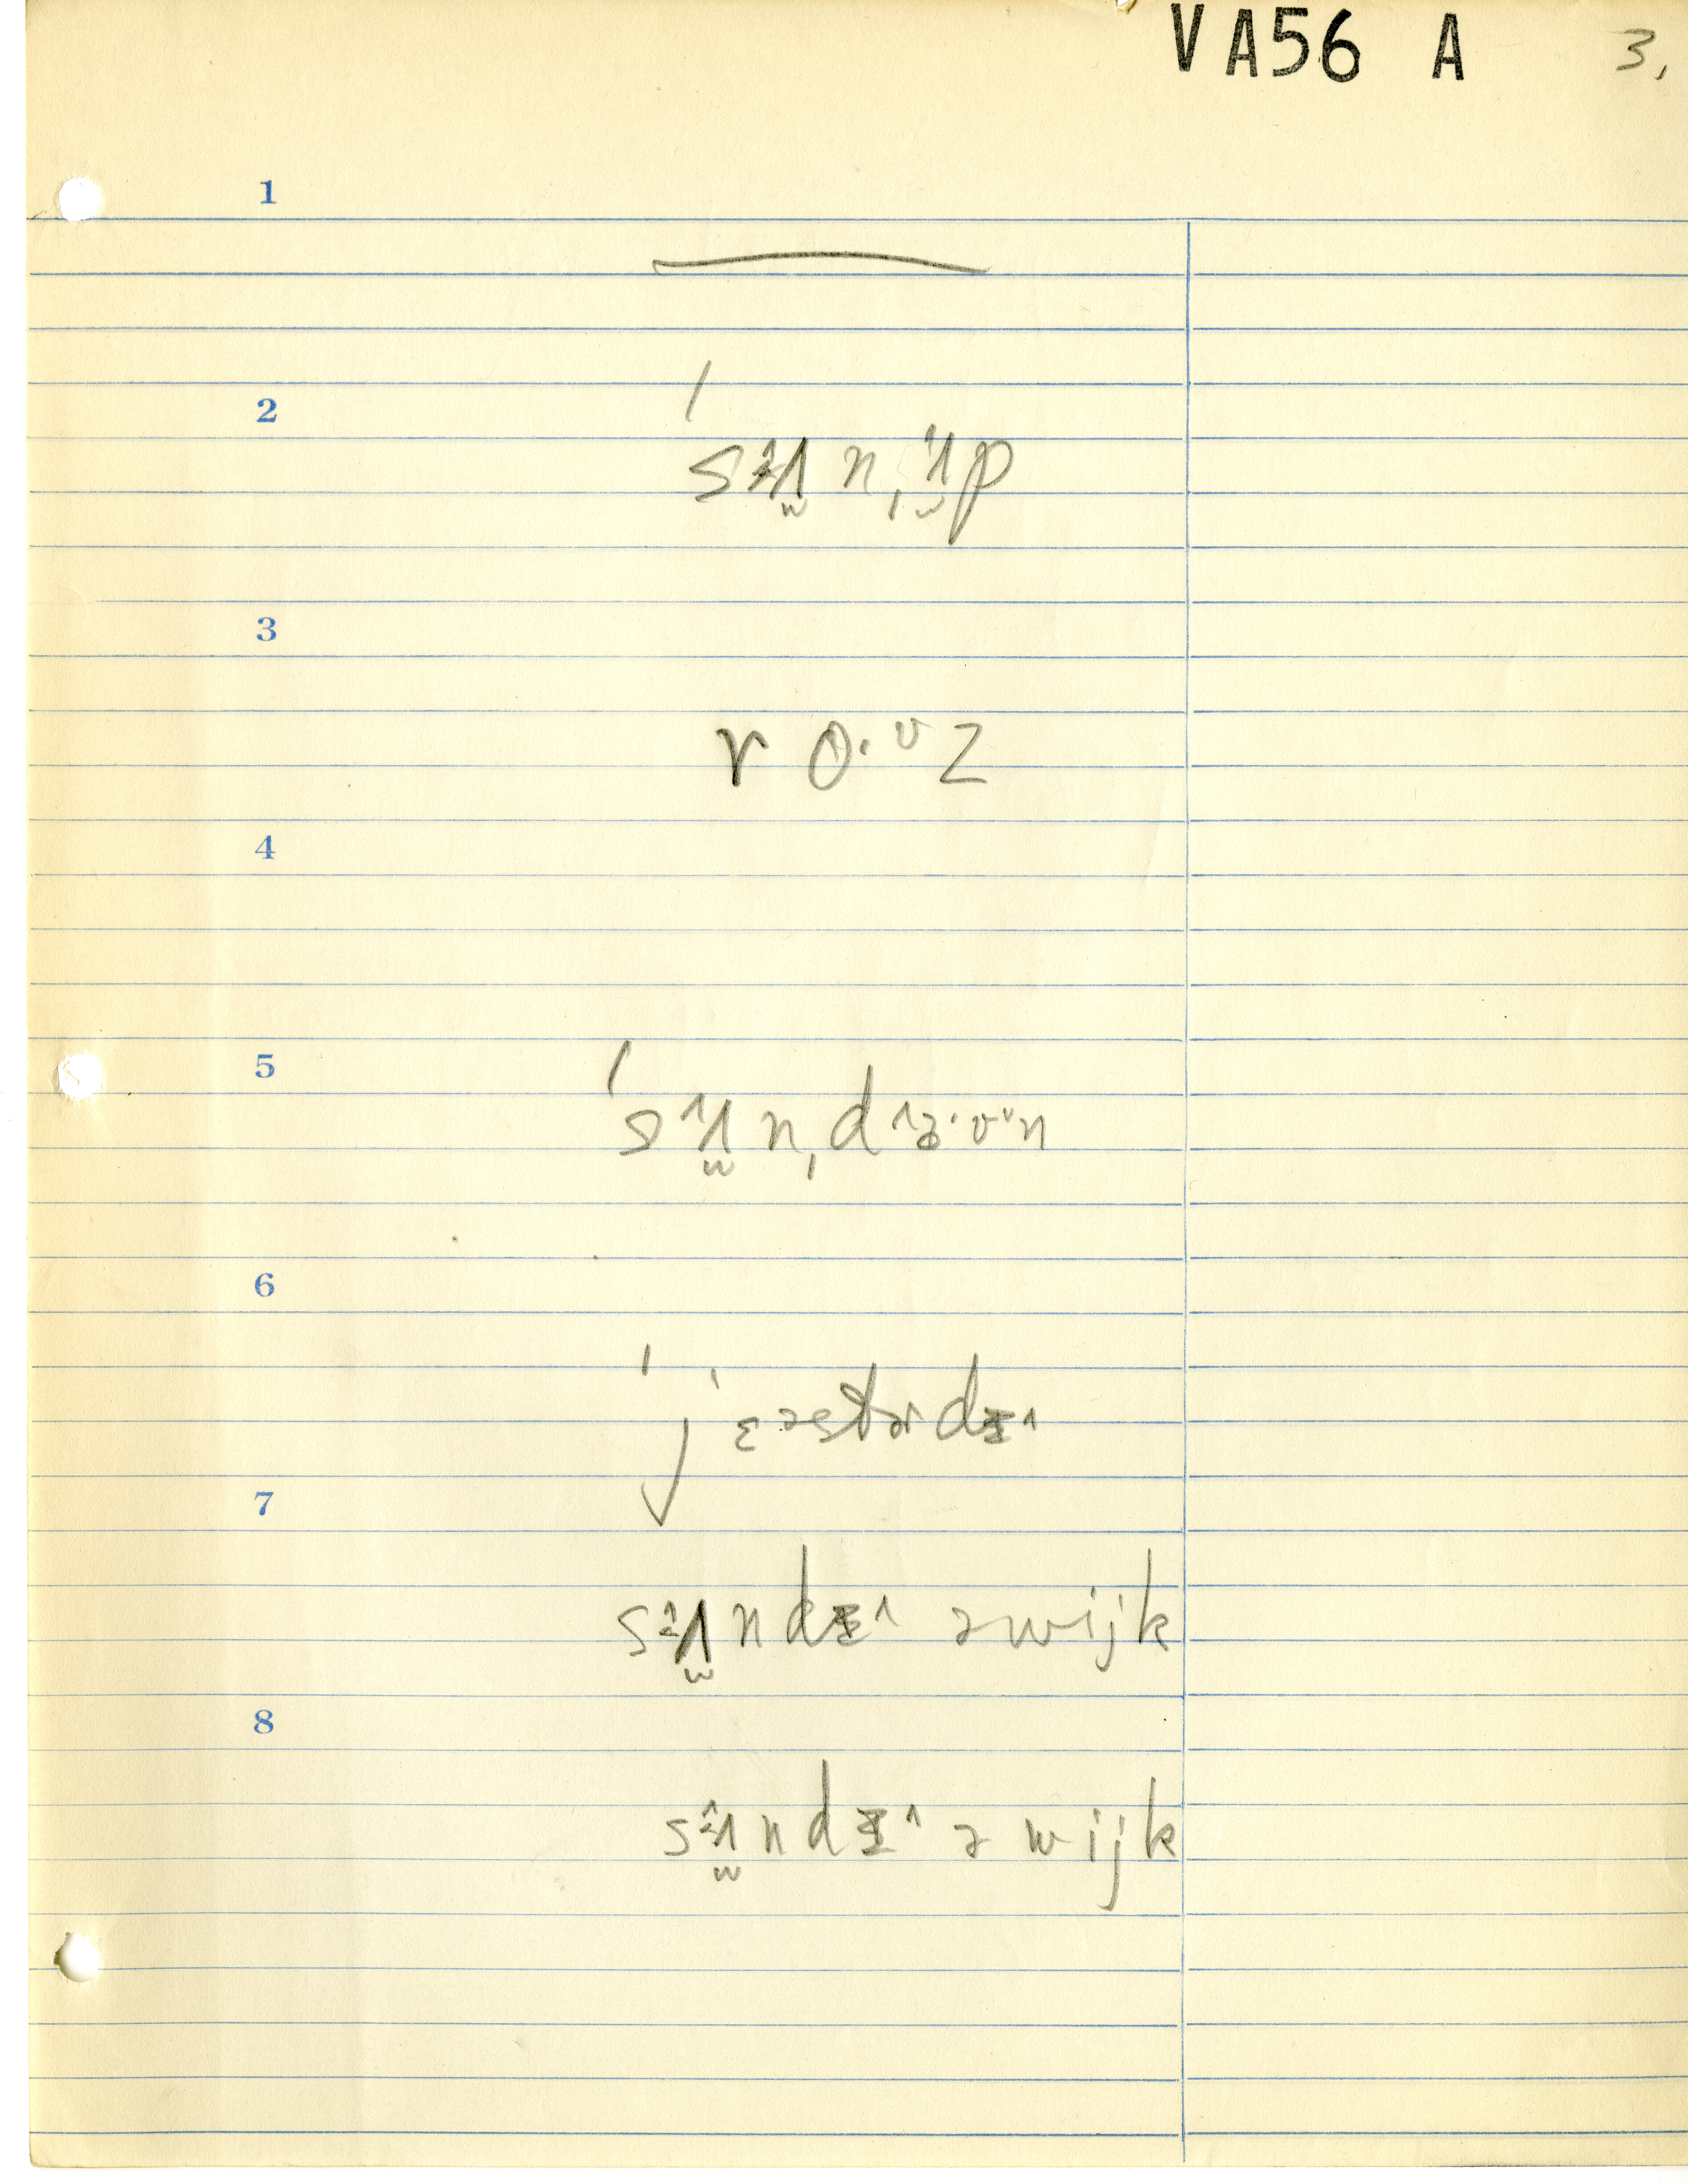 VA56 A 3.
1
2
ˈsɜ^ʌ̬n,^ʌ̬p
3
rɵ·ᶷz
4
5
ˈs^ʌ̬n,d^ɞ·ʊ˅n
6
ˈjɛəstɚdɪ^
7
sɜ^ʌ̬ndɪ^ əwijk
8
sɜ^ʌ̬ndɪ^ ə wijk